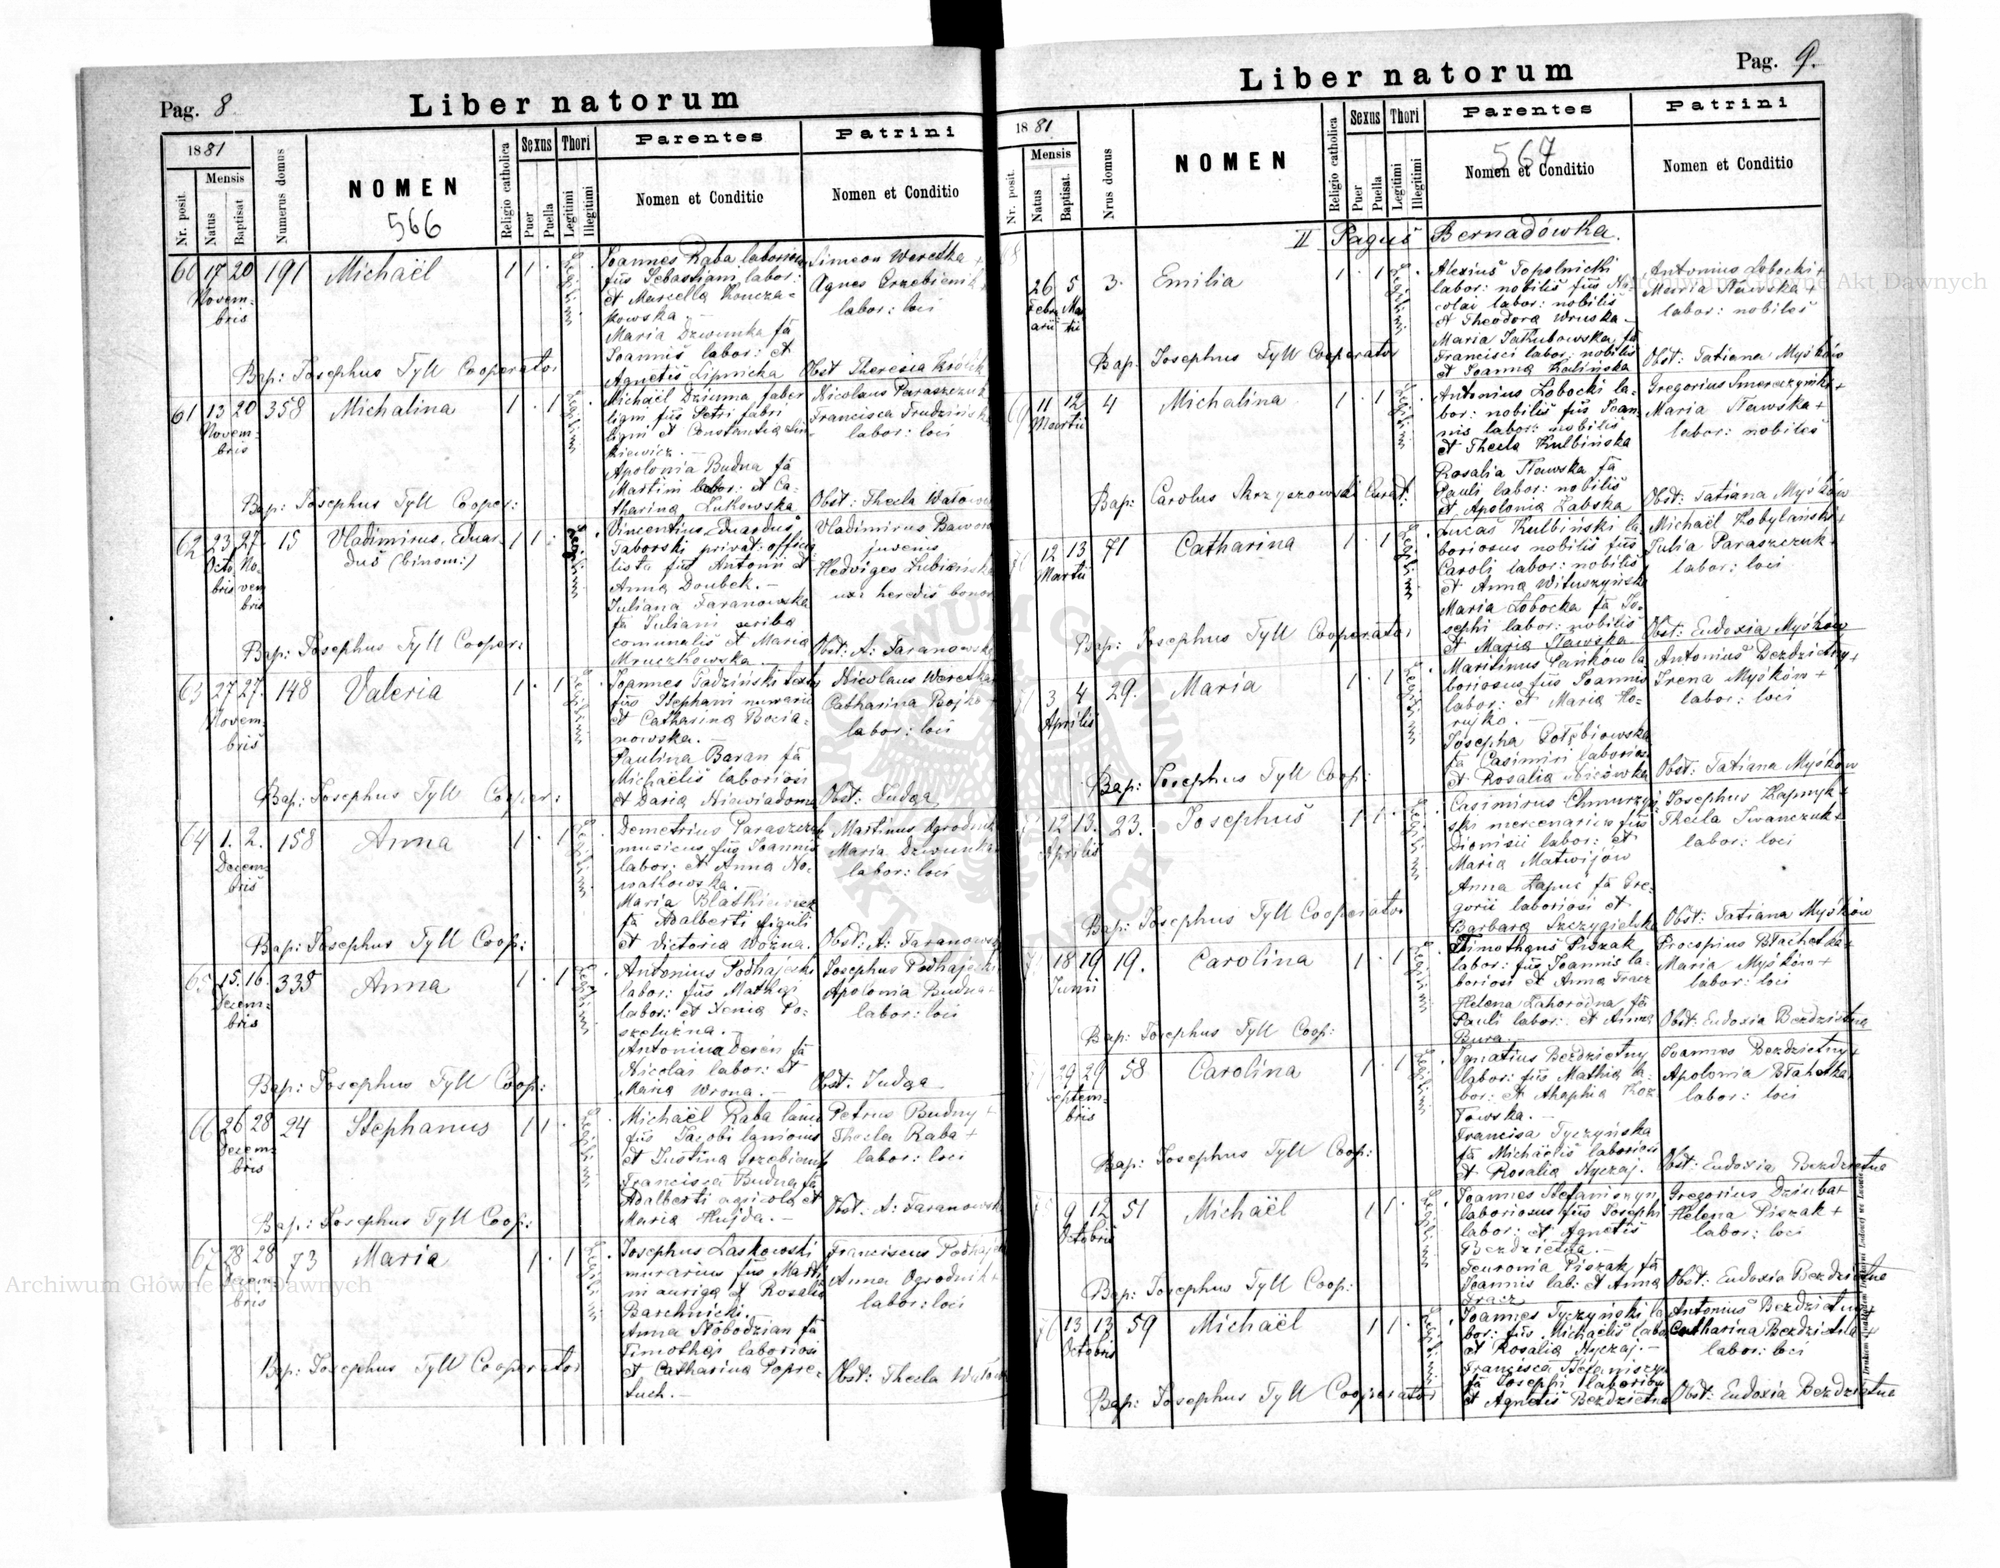 Pag. 8.
Liber natorum
1881
Mensis
Nr. posit.
Natus
Baptisat
Numerus domus
NOMEN
566
Religio catholica
Sexus
Puer
Puella
Thori
Legitimi
Illegitimi
Parentes
Nomen et Conditio
Patrini
Nomen et Conditio
60 17 20 191 Michaël 1 1 ·
Novem-
bris
Joannes Raba laboriosus
fius Sebastiani labor:
et Marcella Koncza-
kowska. —
Maria Dzwinka fa
Joannis labor: et
Agnetis Lipnicka
Simeon Weretka +
Agnes Grzebieniak
labor: loci
Bap: Josephus Tyll Cooperator
Obst Theresia Królik
61 13 20 358 Michalina 1 · 1
Novem-
bris
Michaël Dziuma faber
ligni fius Petri fabri
ligni et Constantia Sin-
kiewicz. —
Apolonia Budna fa
Martini labor: et Ca-
tharina Lukowska.
Nicolaus Paraszczuk
Francisca Trudzińska
labor: loci
Bap: Josephus Tyll Cooper:
Obst: Thecla
62 23 27 15 Vladimirus, Eduar- 1 1 ·
dus (binom:)
Octo No-
bris vem
bris
Vincentius Eduardus
Taborski privat: officia-
lista fius Antonii et
Anna Doubek. —
Juliana Taranowska
fa Juliani scriba
comunalis et Maria
Mruczkowska
Vladimirus
juvenis
Hedviges
uxor heredis bonor
Bap: Josephus Tyll Cooper:
Obst: A: Taranowska
63 27 27 148 Valeria 1 · 1
Novem-
bris
Joannes Gadziński
fius Stephani
et Catharina Bocia-
nowska. —
Paulina Baran fa
Michaelis laboriosi
et Daria Niewiadoma
Nicolaus Weretka
Catharina Bojko
labor: loci
Bap: Josephus Tyll Cooper:
Obst: Judga
64 1. 2. 158 Anna 1 · 1
Decem-
bris
Demetrius Paraszczuk
musicus fius Joannis
labor: et Anna No-
watkowska. —
Maria
fa Adalberti figuli
et Victoria Woźna.
Martinus Ogrodnik
Maria Dzwinka
labor: loci
Bap: Josephus Tyll Coop:
Obst: A: Taranowska
65 15. 16. 338 Anna 1 · 1
Decem-
bris
Antonius Podhajecki
labor: fius Mathei
labor: et Xenia Po-
szeluźna. —
Antonina Deren fa
Nicolai labor: et
Maria Wrona. —
Josephus Podhajecki
Apolonia Budna
labor: loci
Bap: Josephus Tyll Coop:
Obst: Judga
66 26 28 24 Stephanus 1 1 ·
Decem-
bris
Michaël Raba
fius Jacobi
et Justina Grzebieniak
Francisca Budna fa
Adalberti agricola et
Maria Hujda. —
Petrus Budny +
Thecla Raba +
labor: loci
Bap: Josephus Tyll Coop:
Obst: A: Taranowska
67 28 28 73 Maria 1 · 1
Decem-
bris
Josephus Laskowski
murarius fius Marti
ni auriga et Rosalia
Barchnicki.
Anna Słobodzian fa
Timothei laboriosi
et Catharina Popre-
tuch. —
Franciscus Podhajecki
Anna Ogrodnik +
labor: loci
Bap: Josephus Tyll Cooperator
Obst: Thecla
Pag. 9.
Liber natorum
1881
Mensis
Nr. posit.
Natus
Baptisat.
Nrus domus
NOMEN
Religio catholica
Sexus
Puer
Puella
Thori
Legitimi
Illegitimi
Parentes
567
Nomen et Conditio
Patrini
Nomen et Conditio
II Pagus Bernadówka.
26 5 3. Emilia 1 · 1
Febru Mar
arii tii
Alexius Topolnicki
labor: nobilis fius Ni-
colai labor: nobilis
et Theodora Wruska —
Maria Jakubowska, fa
Francisci labor: nobilis
et Joanna Kalińska
Antonius Łobocki +
Maria Stawska +
labor: nobiles
Bap: Josephus Tyll Cooperator
Obst: Tatiana Myśków
69 11 12 4 Michalina 1 · 1
Martii
Antonius Łobocki la-
bor: nobilis fius Joan-
nis labor: nobilis
et Thecla Kulbińska
Rosalia Stawska fa
Pauli labor: nobilis
et Apolonia Zabska
Gregorius Smereczyński +
Maria Stawska +
labor: nobiles
Bap: Carolus Skrzyszowski Curat:
Obst: Tatiana Myśków
12 13 71 Catharina 1 · 1
Martii
Lucas Kulbiński la-
boriosus nobilis fius
Caroli labor: nobilis
et Anna Wituszyńska
Maria Łobocka fa Jo-
sephi labor: nobilis
et Maria Stawska
Michaël Kobylański +
Julia Paraszczuk
labor: loci
Bap: Josephus Tyll Cooperator
Obst: Eudoxia Myśków
3 4 29. Maria 1 · 1
Aprilis
Martinus Pańków la-
boriosus fius Joannis
labor: et Maria Ho-
rujko. —
Josepha Gołębiowska
fa Casimiri laboriosi
et Rosalia
Antonius Bezdzietny +
Irena Myśków +
labor: loci
Bap: Josephus Tyll Coop:
Obst: Tatiana Myśków
12 13. 23. Josephus 1 1 ·
Aprilis
Casimirus Chmurzyń-
ski mercenarius fius
Dionisii labor: et
Maria Matwijów
Anna Łapuc fa Gre-
gorii laboriosi et
Barbara Szczygielska
Josephus
Thecla Iwanczuk +
labor: loci
Bap: Josephus Tyll Cooperator
Obst: Tatiana Myśków
18 19 19. Carolina 1 · 1
Junii
Timotheus Piszak
labor: fius Joannis la-
boriosi et Anna Tracz
Helena Zahorodna fa
Pauli labor: et Anna
Bura. —
Procopius Błachetka +
Maria Myśków +
labor: loci
Bap: Josephus Tyll Coop:
Obst: Eudoxia Bezdzietna
29 29 58 Carolina 1 · 1
Septem-
bris
Ignatius Bezdzietny
labor: fius Mathia la-
bor: et Ahaphia Koz-
łowska. —
Francisca Tyczyńska
fa Michaelis laboriosi
et Rosalia Nyczaj.
Joannes Bezdzietny +
Apolonia Błahetka
labor: loci
Bap: Josephus Tyll Coop:
Obst: Eudoxia Bezdzietna
9 12 51 Michaël 1 1 ·
Octobris
Joannes Stefaniszyn
laboriosus fius Josephi
labor: et Agnetis
Bezdzietna. —
Feuronia Piszak fa
Joannis lab: et Anna
Tracz
Gregorius Dziuba +
Helena Piszak +
labor: loci
Bap: Josephus Tyll Coop:
Obst: Eudoxia Bezdzietna
13 13 59 Michaël 1 1 ·
Octobris
Joannes Tyczyński la-
bor: fius Michaelis labor
et Rosalia Nyczaj. —
Francisca Stefaniszyn
fa Josephi laboriosi
et Agnetis Bezdzietna
Antonius Bezdzietny +
Catharina Bezdzietna +
labor: loci
Bap: Josephus Tyll Cooperator
Obst: Eudoxia Bezdzietna
Archiwum Główne Akt Dawnych
Archiwum Główne Akt Dawnych
ARCHIWUM GŁÓWNE AKT DAWNYCH